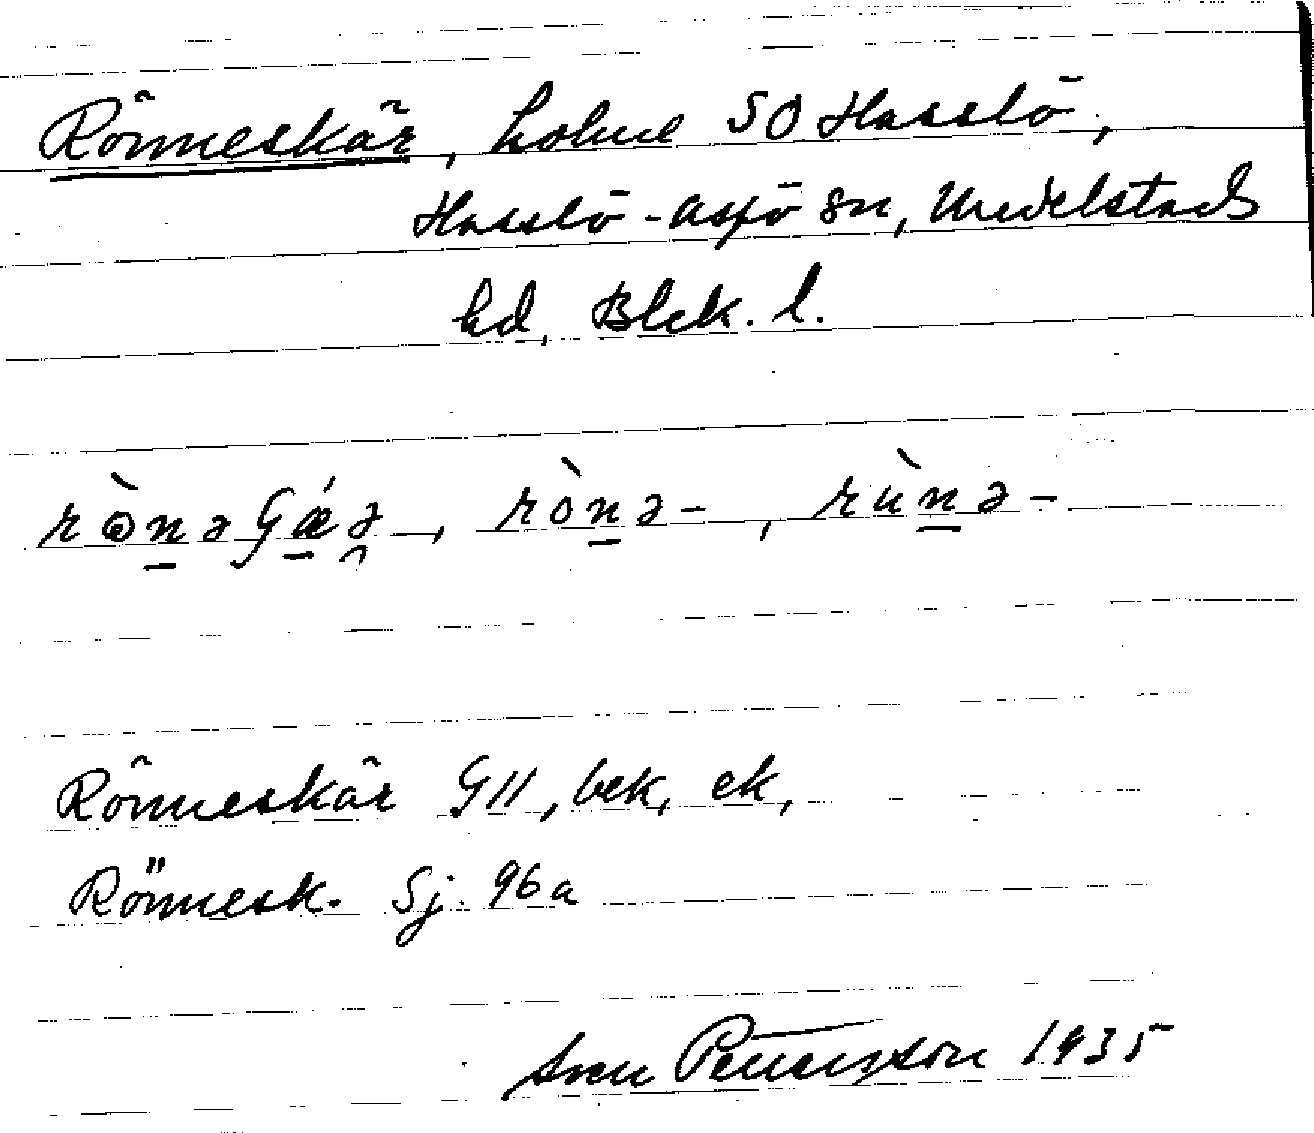 Rönneskär, holme SO Hasslö,
Hasslö-Aspö sn, Medelstads
hd, Blek. l.
rὸ̀n̲əGǽ̲ə̯, ròn̲ə-, rùn̲ə-
Rönneskär GII, bek, ek,
Rönnesk. Sj. 96a
Sven Petterzson 1935